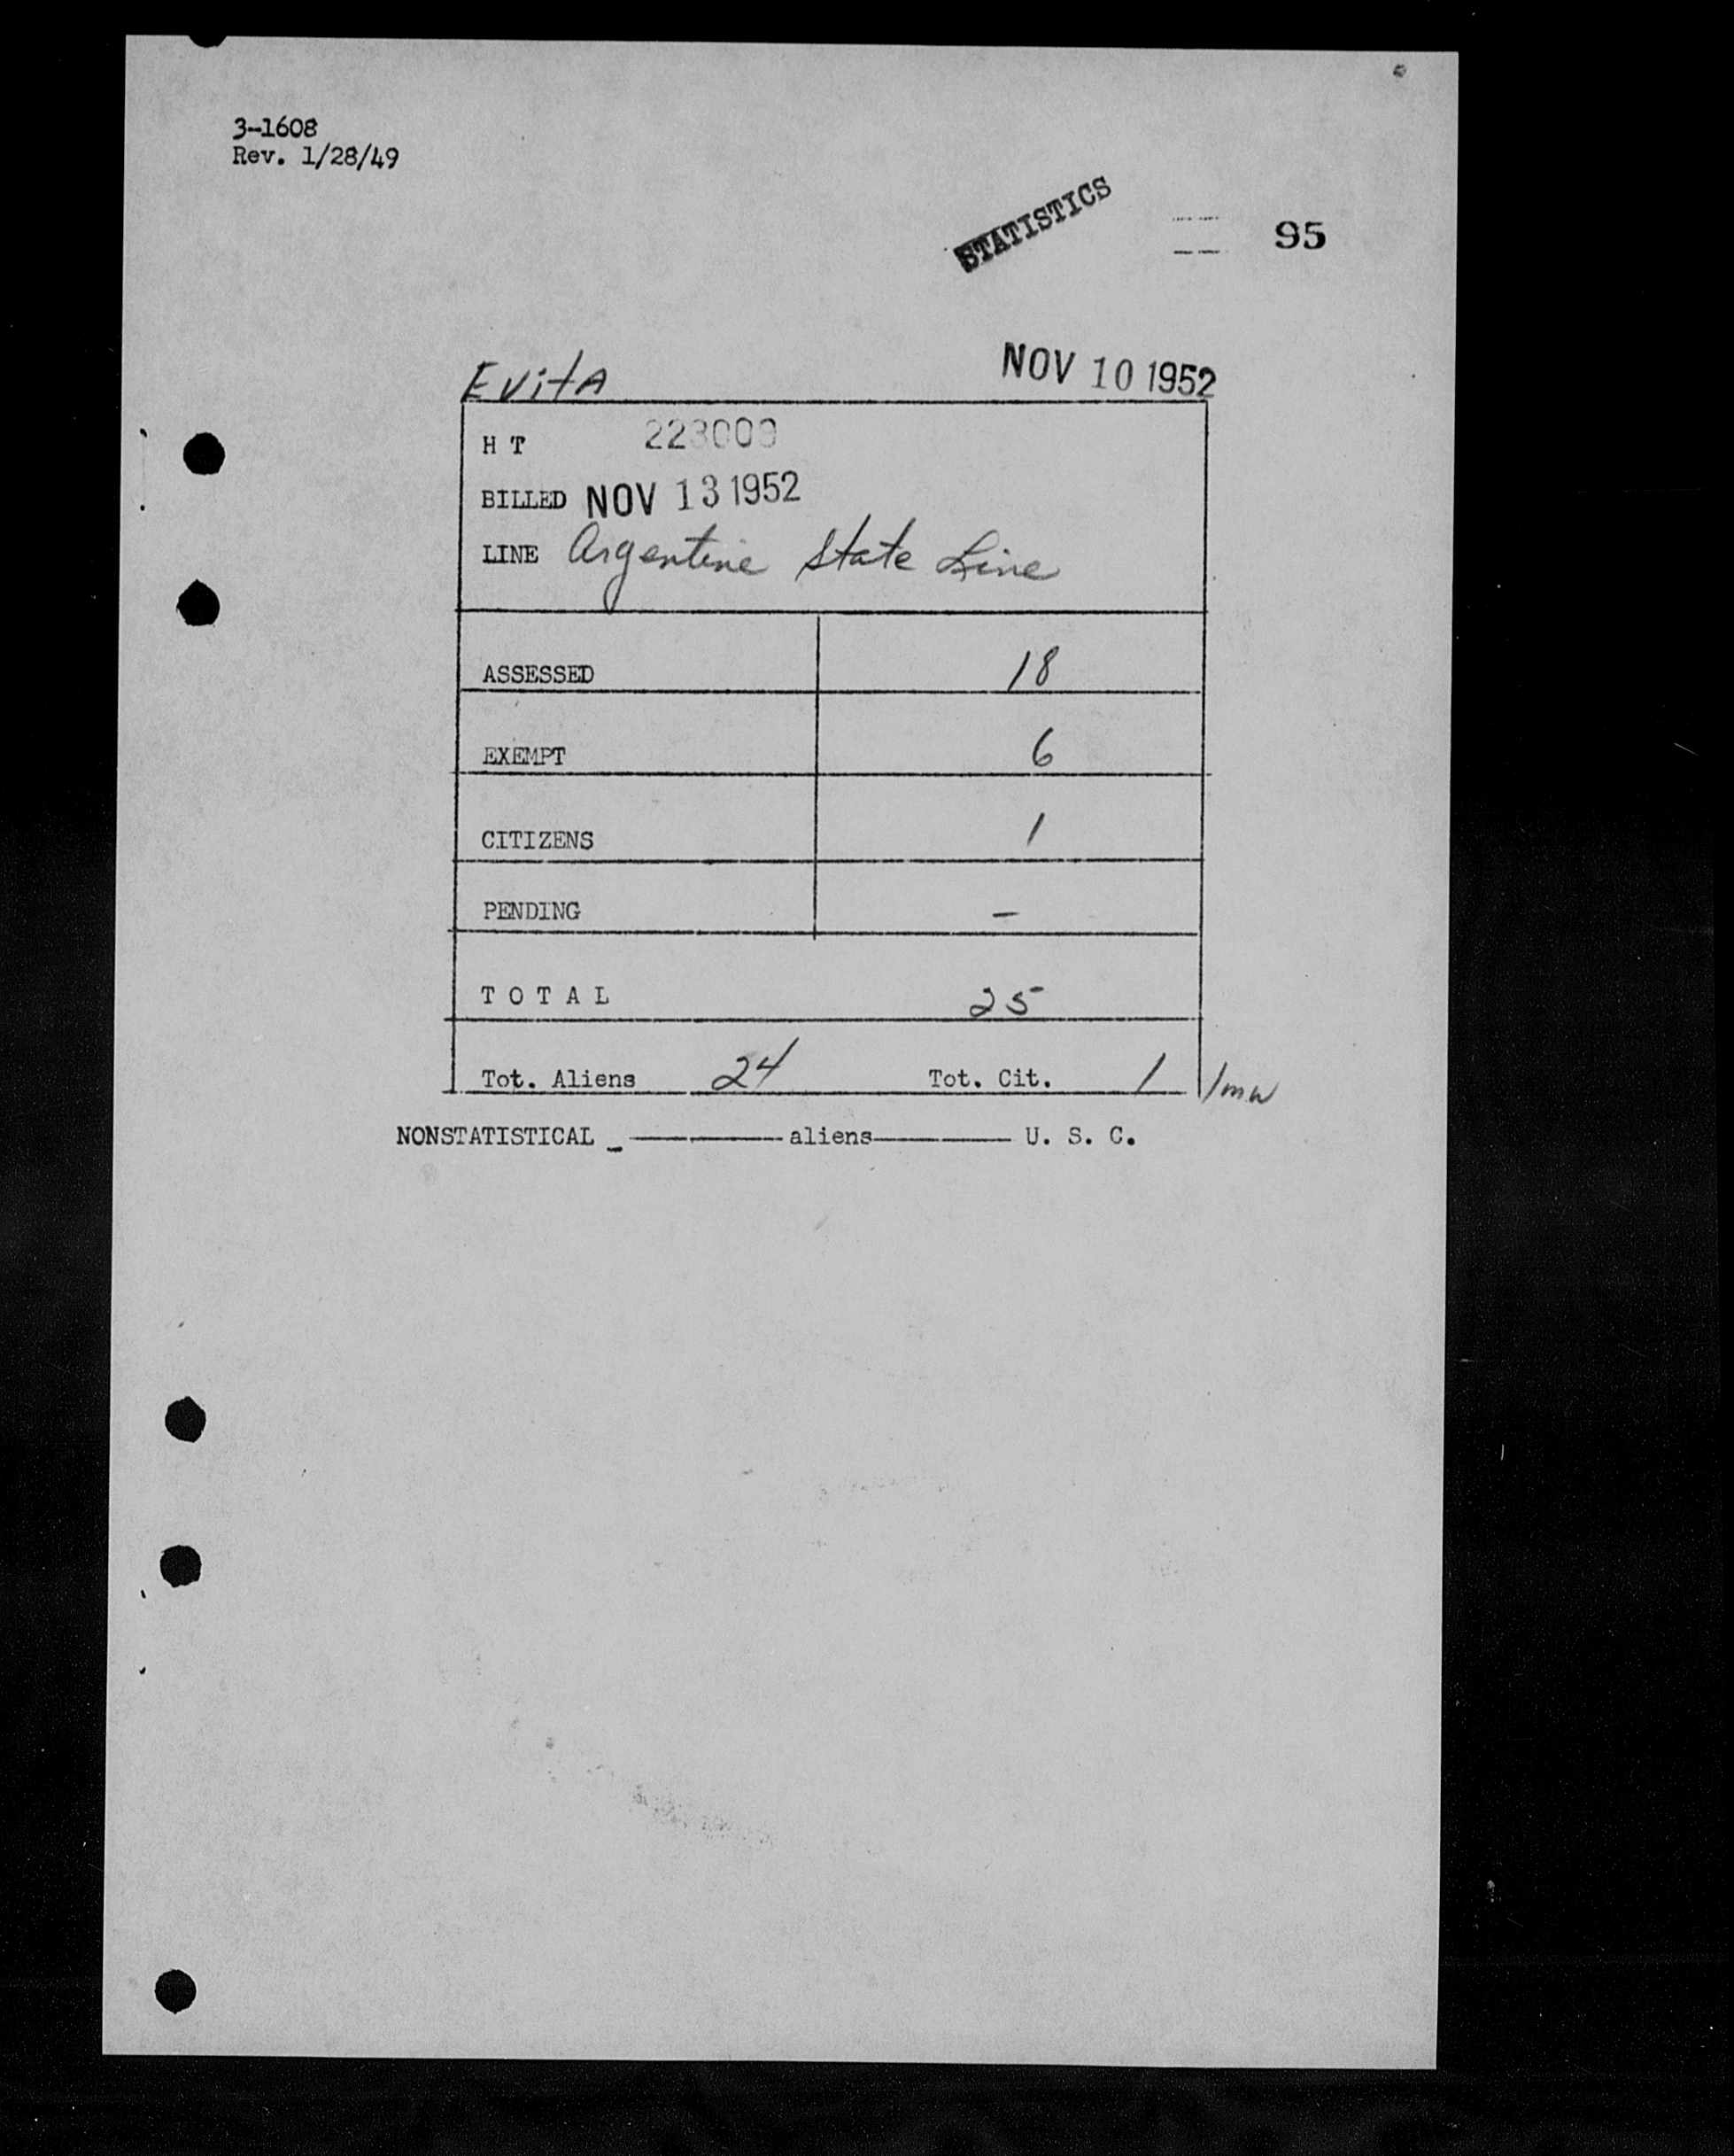 3-1608
Rev. 1/28/49
STATISTICS
95
Evita NOV 10 1952
H T 223000
BILLED NOV 13 1952
LINE Argentine State Line
ASSESSED 18
EXEMPT 6
CITIZENS 1
PENDING -
T O T A L 25
Tot. Aliens 24 Tot. Cit. 1 /mw
NONSTATISTICAL _ aliens U. S. C.